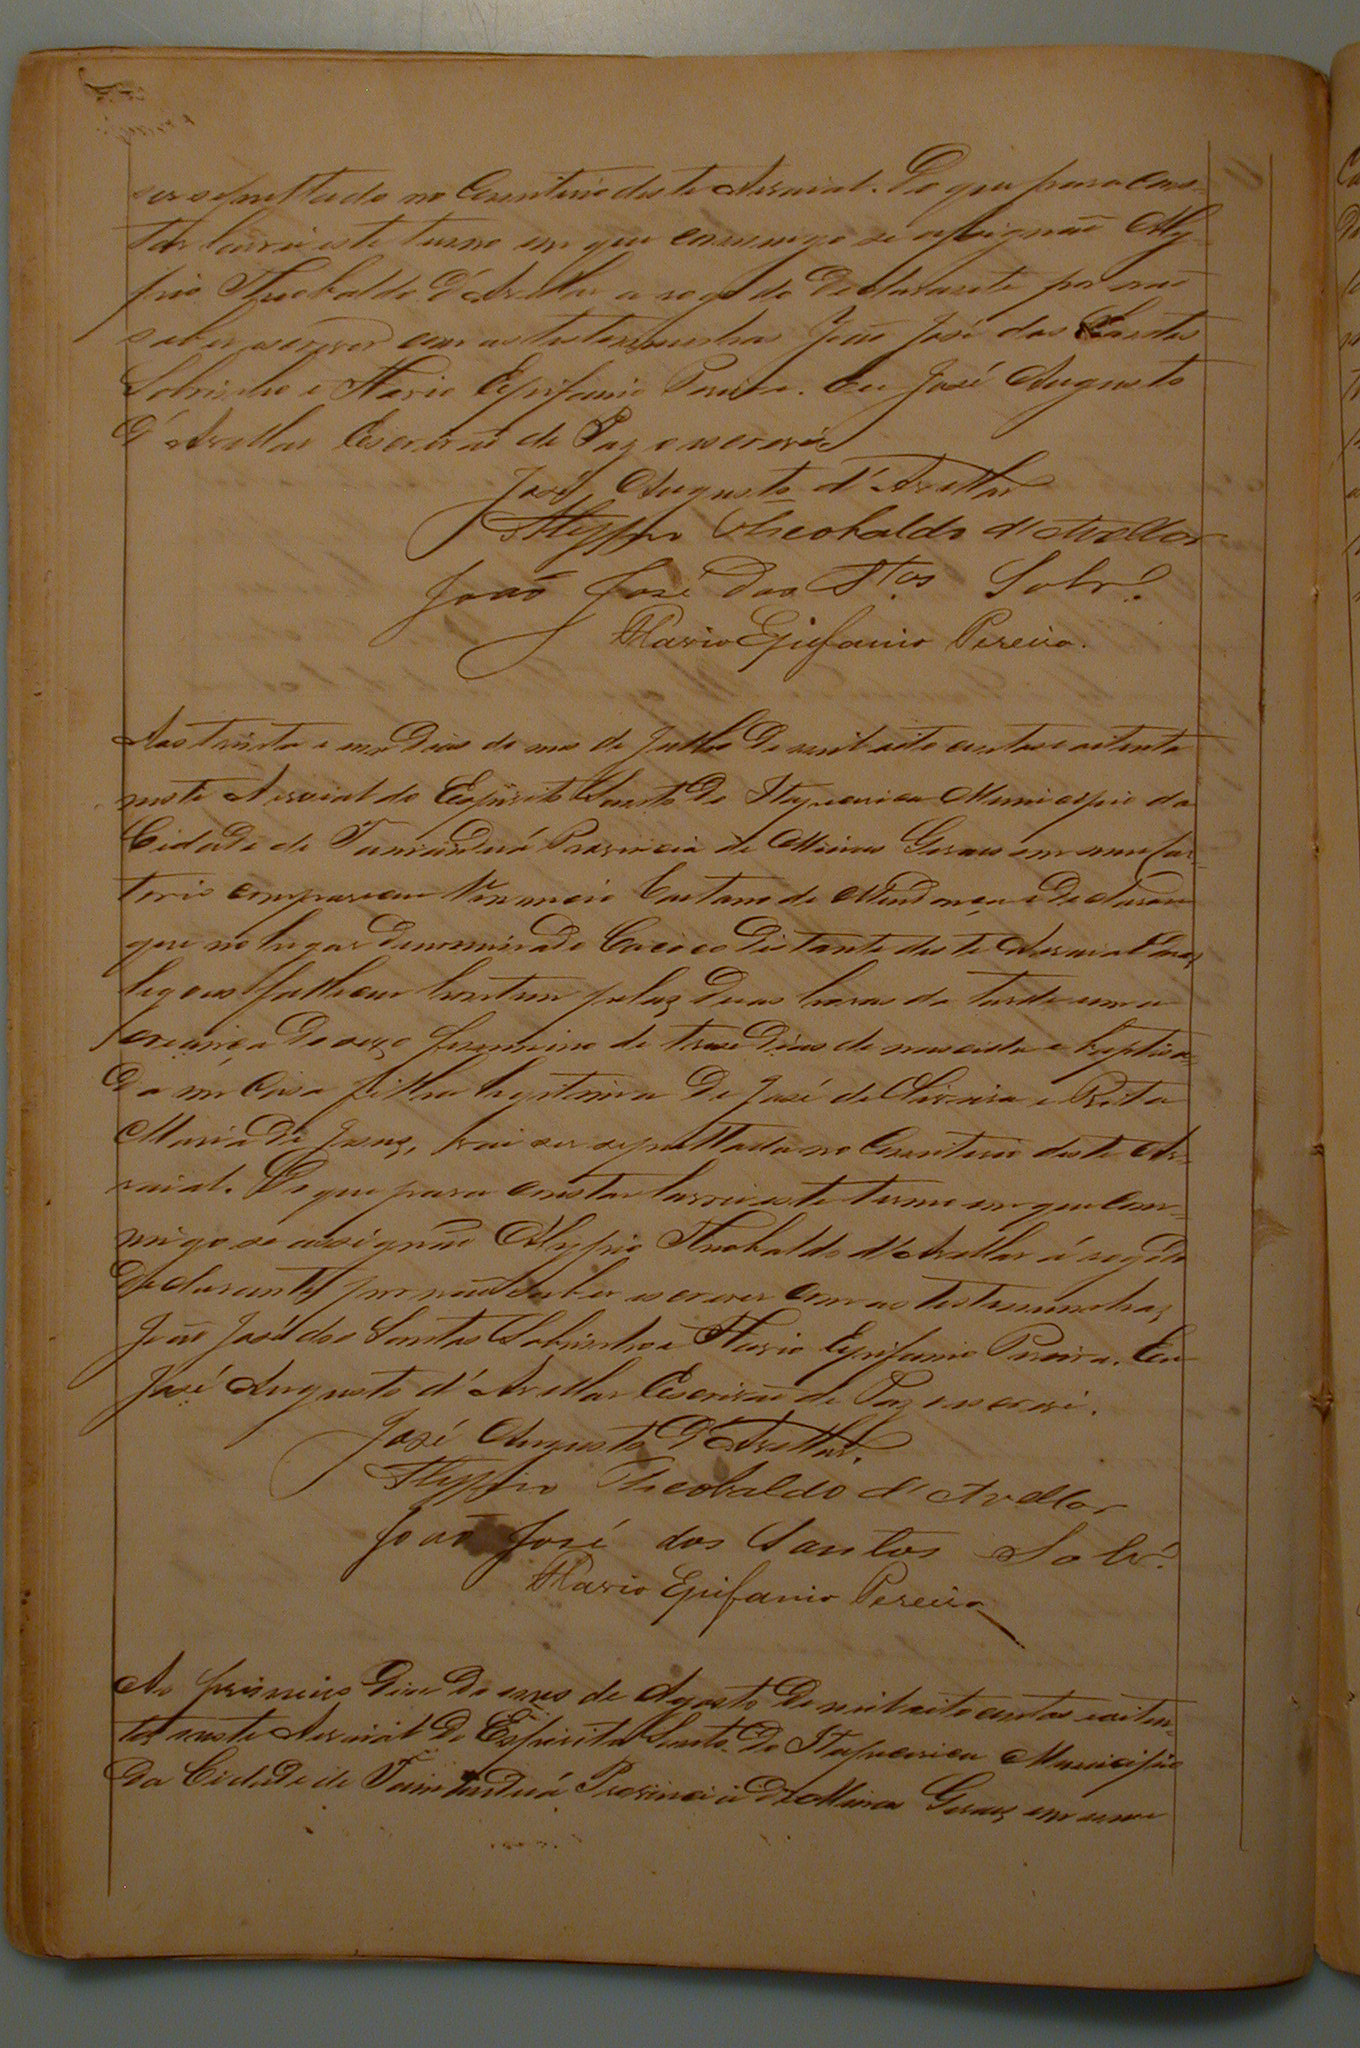 ser sepultado no Cemiterio deste Arraial. Do que para cons-
tar lavrei este termo em que commigo se assignaõ Aly-
pio Theobaldo d'Avellar a rogo do declarante por naõ
saber escrever com as testemunhas Joaõ José dos Santos
Sobrinho e Flavio Epifanio Pereira. Eu José Augusto
d'Avellar Escrivaõ de Paz o escrevi
José Augusto d'Avellar
Alyppio Theobaldo d'Avellar
João José dos Stos Sobrº
Flavio Epifanio Pereira.
Aos trinta e um dias do mes de Julho de mil oito centos e oitenta
neste Arraial do Espirito Santo de Itapecerica Municipio da
Cidade de Tamanduá Provincia de Minas Geraes em meu Car-
torio compareceu Venancio Caetano de Mendonça e declarou
que no lugar denominado distante deste Arraial
legoas falleceu hontem pelaz duas horas da tarde uma
creança do sexo feminino de treze dias de nascida e baptisa-
da em casa filha legitima de José de Oliveira e Rita
Maria de Jesuz, vai ser sepultada no Cemiterio deste Ar-
raial. Do que para constar lavrei este termo em que com-
migo se assignaõ Alypio Theobaldo d'Avellar á rogo do
declarante por naõ saber escrever com as testemunhaz
Joaõ José dos Santos Sobrinho e Flavio Epifanio Pereira. Eu
José Augusto d'Avellar Escrivaõ de Paz o escrevi.
José Augusto d'Avellar.
Alyppio Theobaldo d'Avellar
João José dos Santos Sobrº
Flavio Epifanio Pereira
Ao primeiro dia do mes de Agosto de mil oito centos e oiten-
ta neste Arraial do Espirito Santo de Itapecerica Municipio
da Cidade de Tamanduá Provincia de Minas Geraes em meu